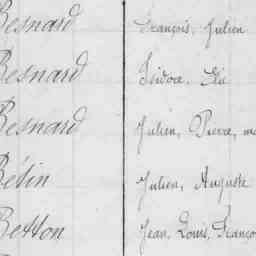 Besnard François, Julien
Besnard Isidore, Élie
Besnard Julien, Pierre,
Bétin Julien, Auguste
Betton Jean, Louis, Franço